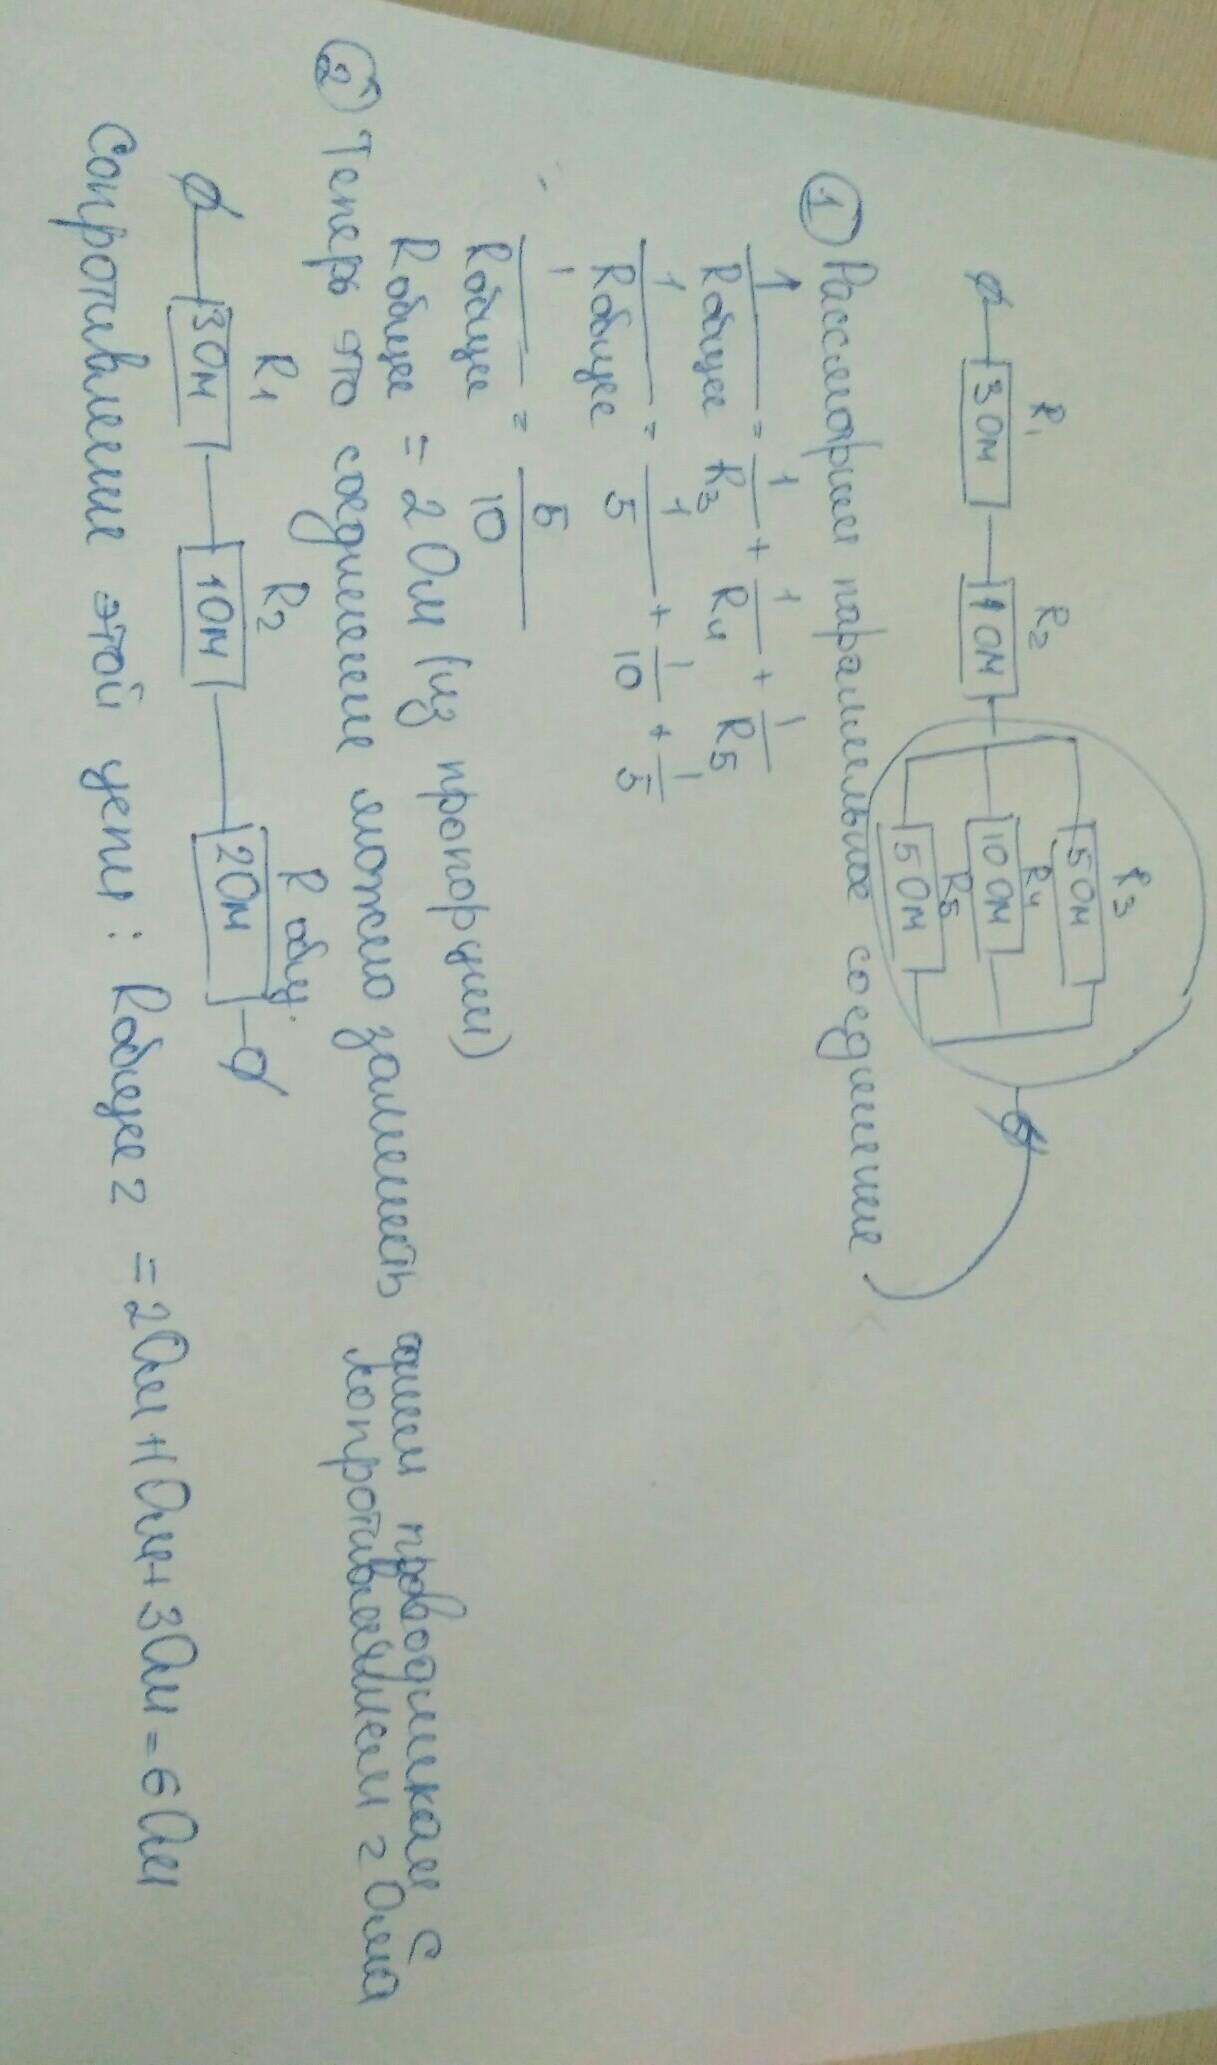 R1 R2 R3
3 Ом 1 Ом 5 Ом
R4
10 Ом
R5
5 Ом
① Рассмотрим параллельное соединение
1/Rобщее = 1/R3 + 1/R4 + 1/R5
1/Rобщее = 1/5 + 1/10 + 1/5
1/Rобщее = 5/10
Rобщее = 2 Ом (из пропорции)
② Теперь это соединение можно заменить одним проводником с
сопротивлением 2 Ома
R1 R2 Rобщ.
3 Ом 1 Ом 2 Ом
Сопротивление этой цепи: Rобщее 2 = 2 Ом + 1 Ом + 3 Ом = 6 Ом